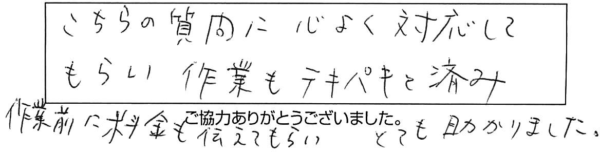 こちらの質問に心よく対応して
もらい作業もテキパキと済み
ご協力ありがとうございました。
作業前に料金も伝えてもらい とても助かりました。